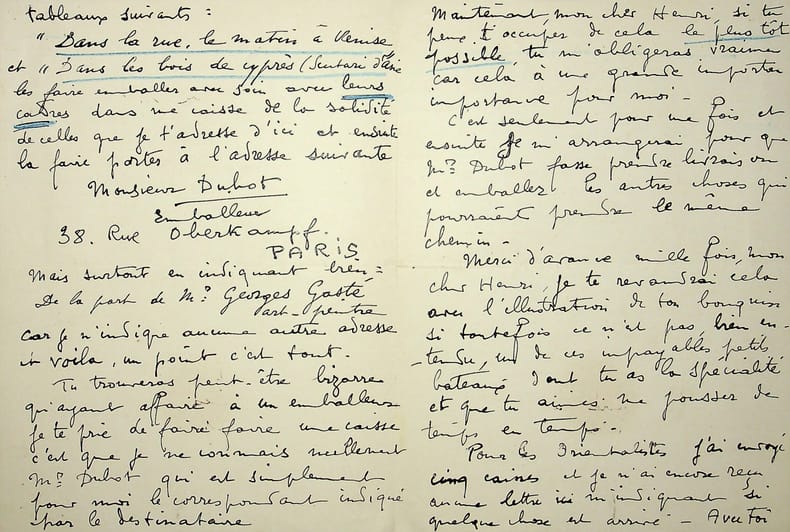 tableaux suivants :
" Dans la rue, le matin à Venise
et " Dans les bois de cyprès (Scutari d'Asie
les faire emballer avec soin avec leurs
cadres dans une caisse de la solidité
de celles que je t'adresse d'ici et ensuite
la faire porter à l'adresse suivante
Monsieur Dubot
Emballeur
38. Rue Oberkampf.
PARIS
Mais surtout en indiquant bien =
De la part de Mr. Georges Gasté
art. peintre
car je n'indique aucune autre adresse
et voila, un point c'est tout.
Tu trouveras peut-être bizarre
qu'ayant affaire à un emballeur
je te prie de faire faire une caisse
c'est que je ne connais nullement
Mr. Dubot qui est simplement
pour moi le correspondant indiqué
par le destinataire
Maintenant, mon cher Henri, si tu
peux t'occuper de cela le plus tôt
possible, tu m'obligeras vraiment
car cela à une grande
importance pour moi -
C'est seulement pour une fois et
ensuite je m'arrangerai pour que
Mr. Dubot fasse prendre livraison
et emballer les autres choses qui
pourraient prendre le même
chemin -
Merci d'avance mille fois, mon
cher Henri, je te revaudrai cela
avec l'illustration de ton bouquin
si toutefois ce n'est pas, bien en-
-tendu, un de ces impayables petits
bateaux dont tu as la spécialité
et que tu aimes me pousser de
temps en temps -
Pour les Orientalistes j'ai envoyé
cinq caisses et je n'ai encore reçu
aucune lettre ici m'indiquant si
quelque chose est arrivé - Avec toi